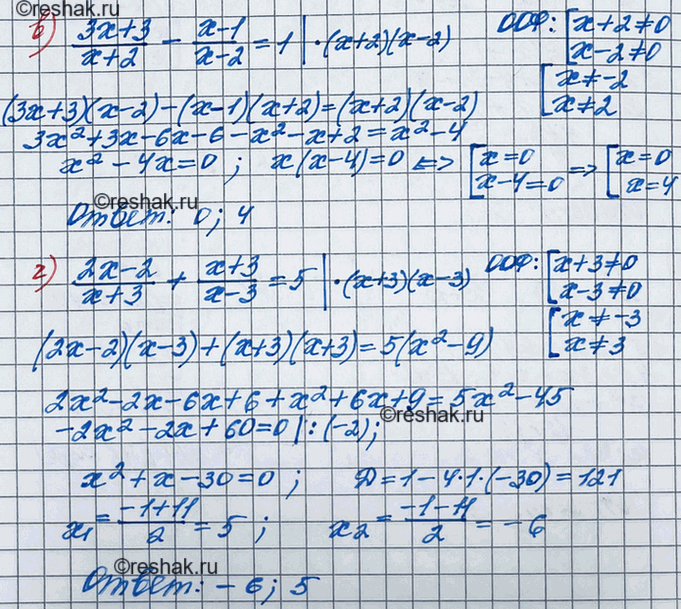 в) (3x+3)/(x+2) - (x-1)/(x-2) = 1 | ·(x+2)(x-2) ООФ: [x+2≠0
[x-2≠0
[x≠-2
[x≠2
© reshak.ru
(3x+3)(x-2)-(x-1)(x+2)=(x+2)(x-2)
3x²+3x-6x-6-x²-x+2=x²-4
x²-4x=0; x(x-4)=0 <=> [x=0 => [x=0
[x-4=0 [x=4
© reshak.ru
Ответ: 0; 4
г) (2x-2)/(x+3) + (x+3)/(x-3) = 5 | ·(x+3)(x-3) ООФ: [x+3≠0
[x-3≠0
[x≠-3
[x≠3
(2x-2)(x-3)+(x+3)(x+3)=5(x²-9)
2x²-2x-6x+6+x²+6x+9=5x²-45
© reshak.ru
-2x²-2x+60=0 | :(-2);
x²+x-30=0; Д=1-4·1·(-30)=121
x₁=(-1+11)/2=5; x₂=(-1-11)/2=-6
© reshak.ru
Ответ: -6; 5